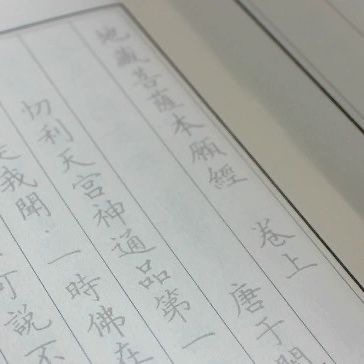 地藏菩薩本願經　卷上
唐于闐
忉利天宮神通品第一
我聞．一時佛在
說不